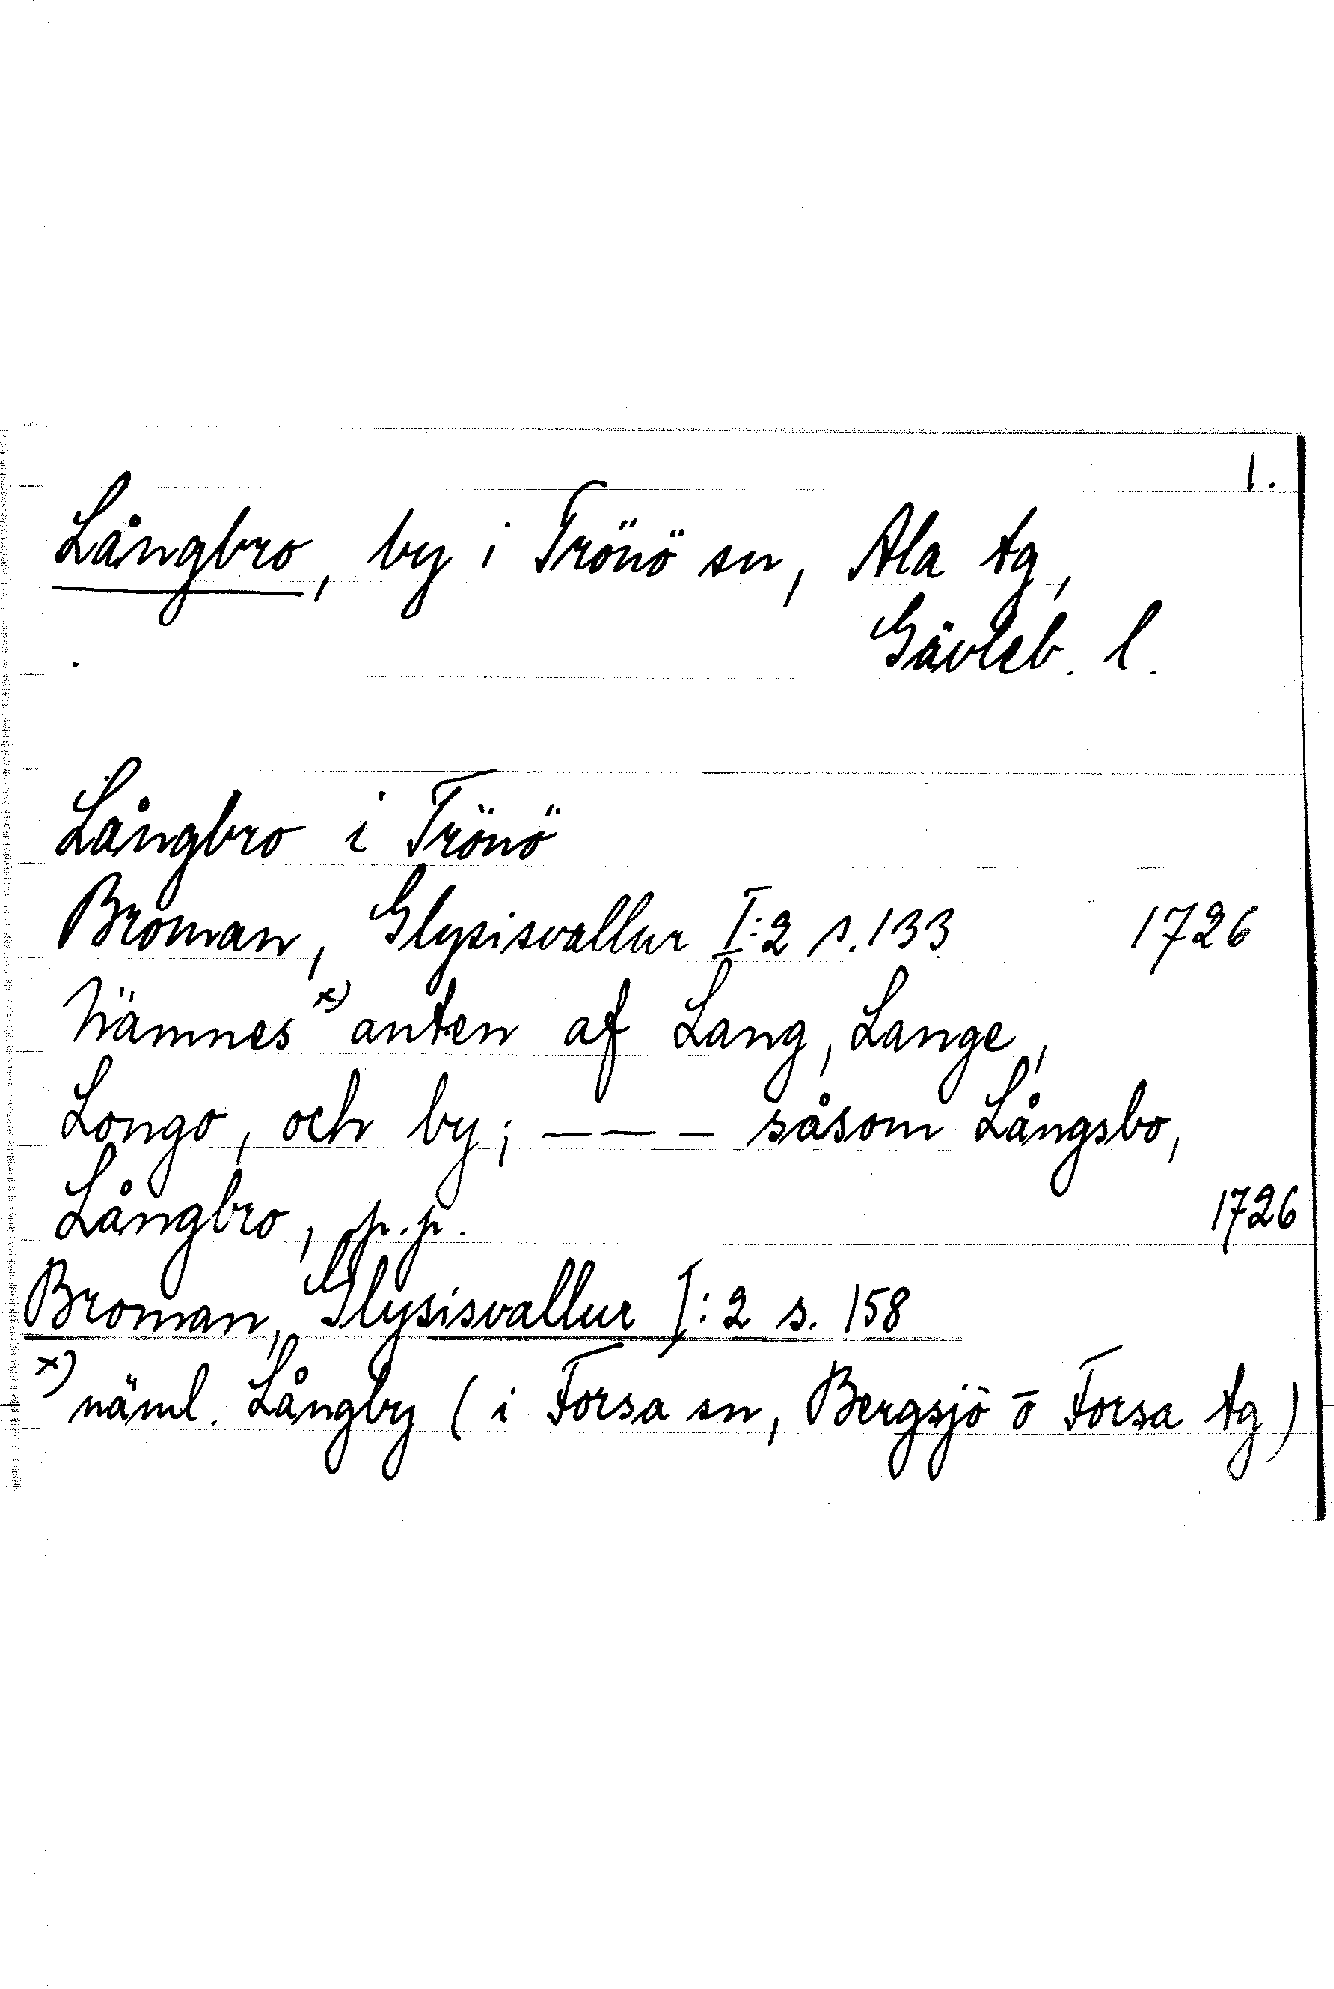 1.
Långbro, by i Trönö sn, Ala tg,
Gävleb. l.
Långbro i Trönö
Broman, Glysisvallur I:2 s.133 1726
Nämnes x) anten af Lang, Lange,
Longo, och by; — — — såsom Långsbo,
Långbro, p.p. 1726
Broman, Glysisvallur I:2 s. 158
x) näml. Långby (i Forsa sn, Bergsjö o Forsa tg)